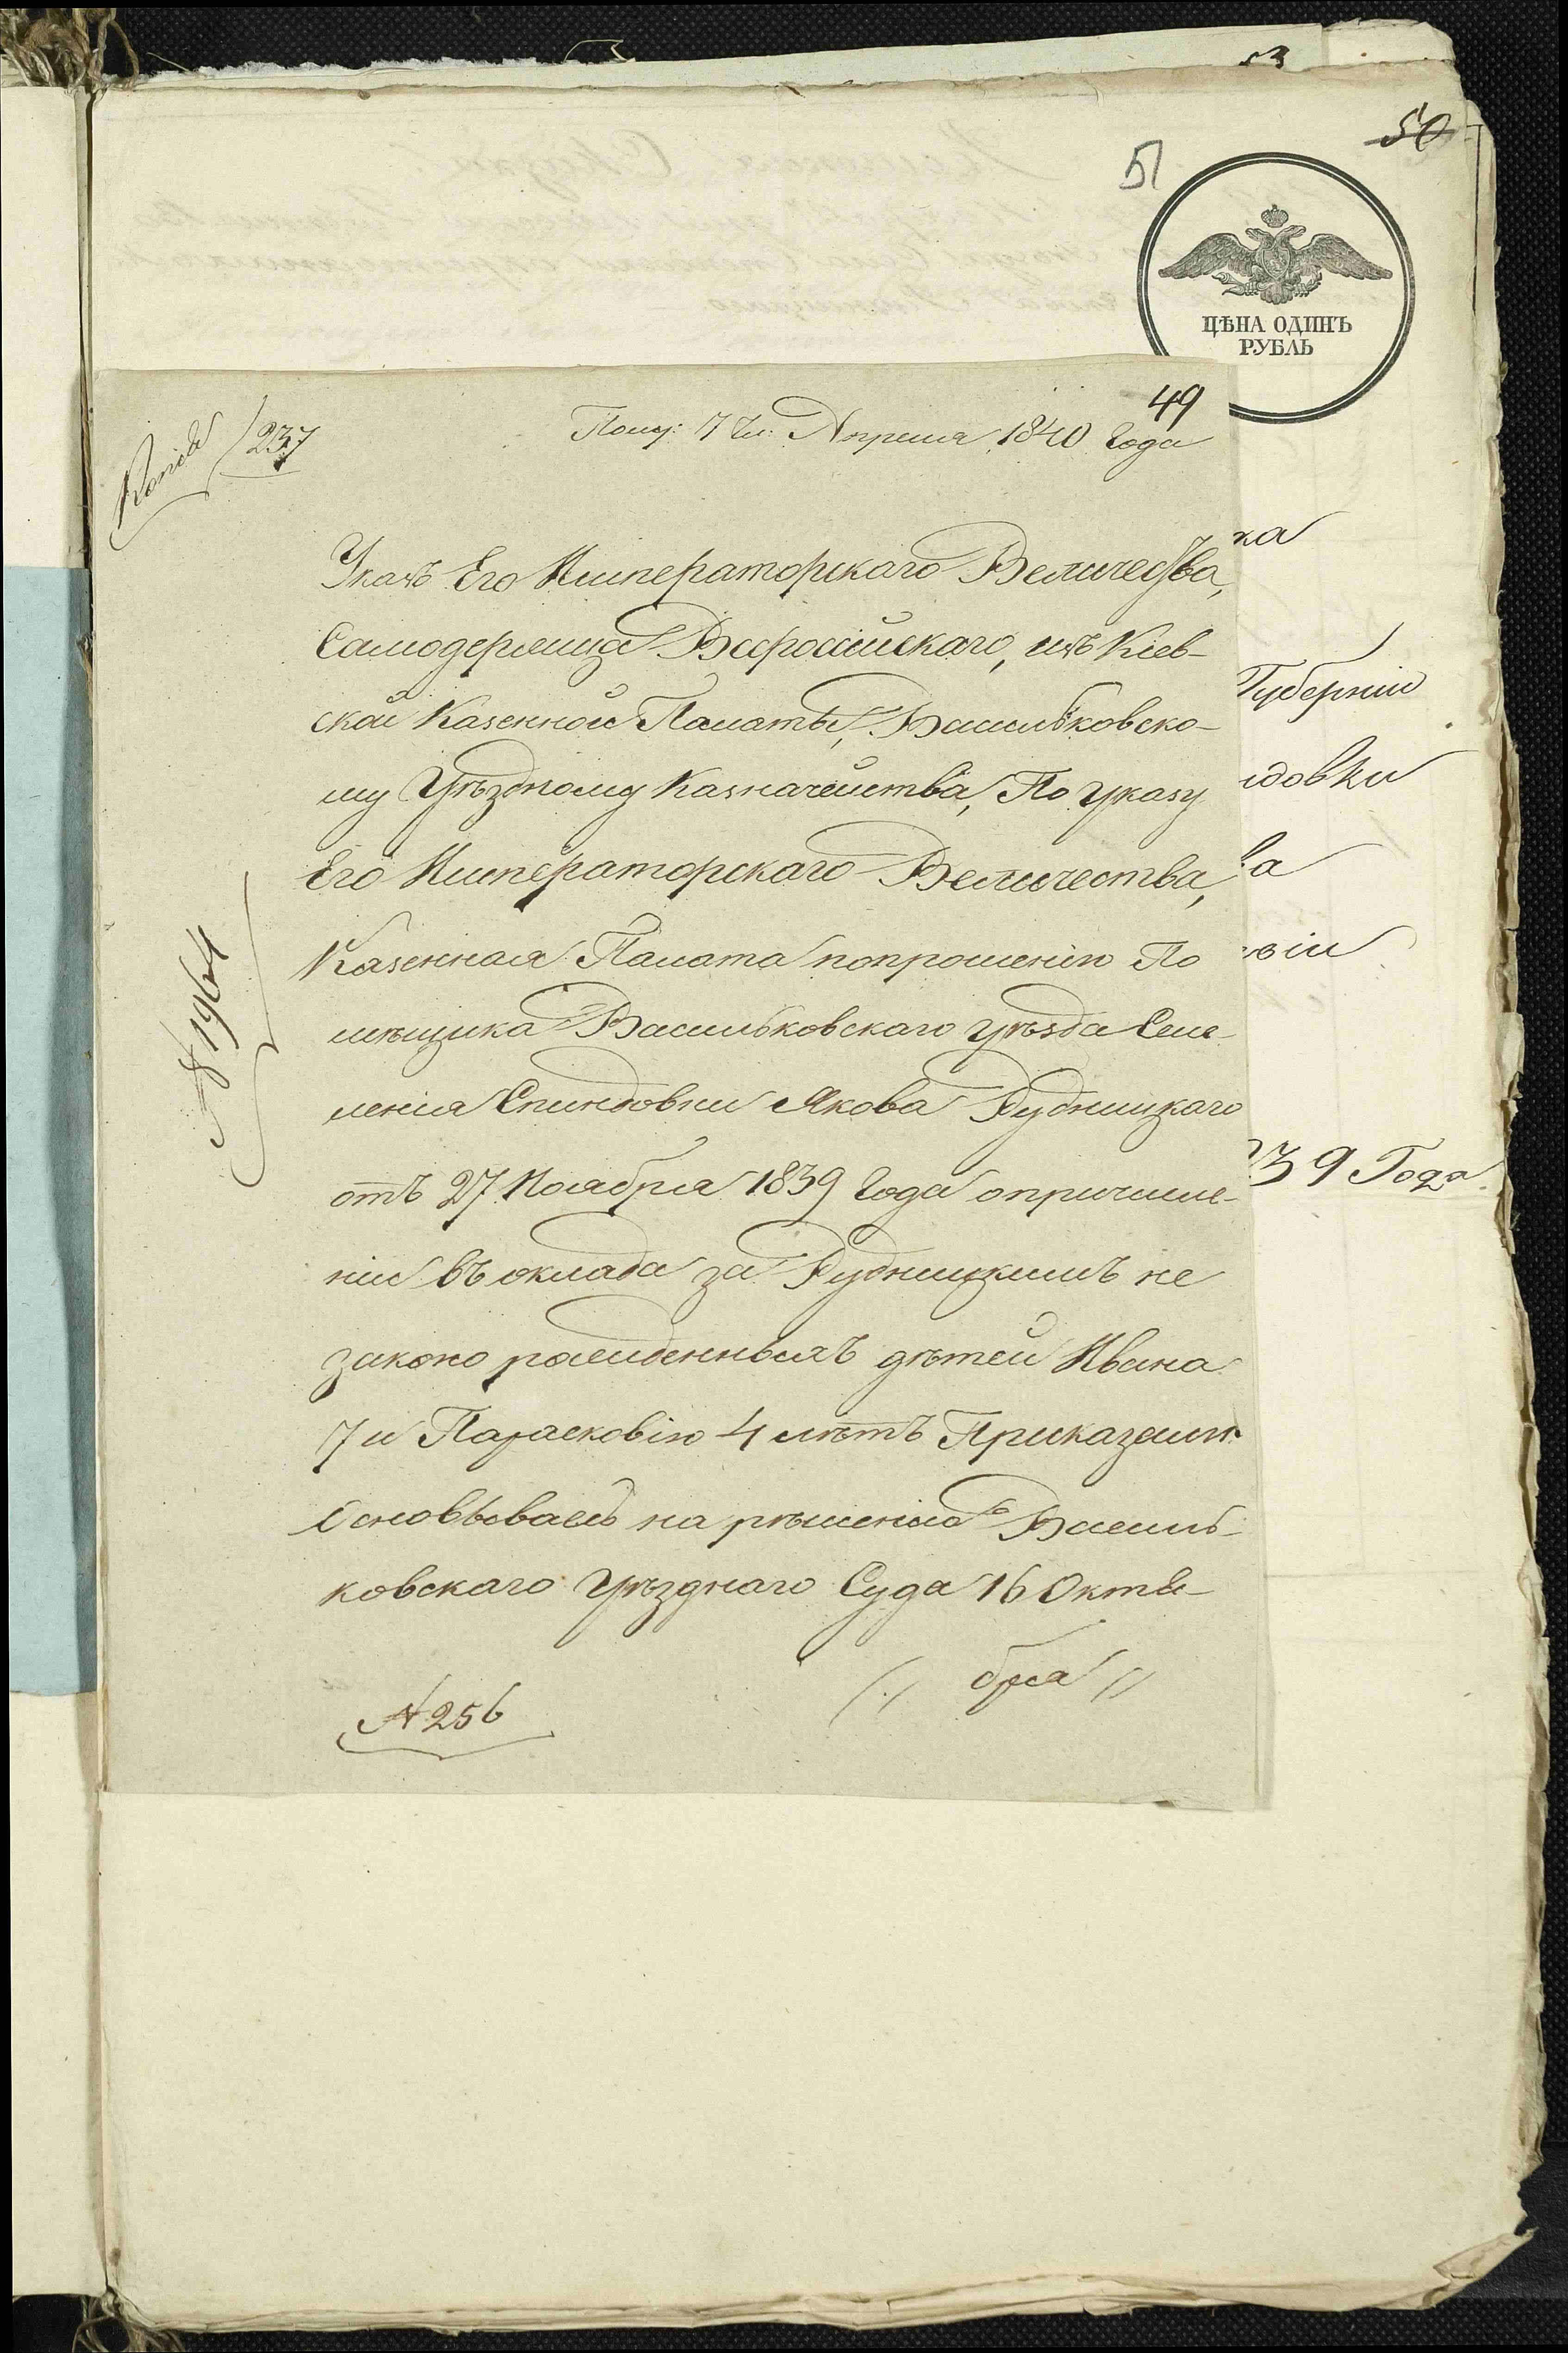 53
50
51
ЦѢНА ОДИНЪ
РУБЛЬ
49
Копія / 237
Полу: 7 Чи: Апреля 1840 Года
Указъ Его Императорскаго Величества,
Самодержица Всеросийскаго, изъ Кіев-
ской Казенной Палаты, Васильковско-
му Уѣздному Казначейства, По указу
Его Императорскаго Величества,
Казенная Палата попрошенію По
мѣщика Васильковскаго уѣзда Селе-
ленія Спиндовки Якова Рудницкаго
отъ 27 Ноября 1839 Года опричисле-
ніи въ оклада за Рудницкимъ не
законо рожденныхъ дѣтей Ивана
7 и Парасковію 4 лѣтъ Приказали
Основываясь на рѣшеніа Василь-
ковскаго Уѣзднаго Суда 16 Октя-
бря
№ 256
№ 1964
ка
Губерніи
довки
ва
віи
39 Года